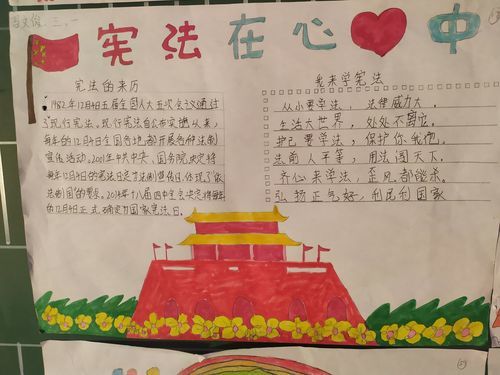 宪法在心中
宪法的来历
1982年12月4日五届全国人大五次会议通过
了现行宪法。现行宪法自公布实施以来,
每年的12月4日全国各地都开展各种法制
宣传活动。2001年中共中央、国务院决定将
每年12月4日的宪法日定为法制宣传日,体现了依
法制国的要求。2014年十八届四中全会决定将每年
的12月4日正式确定为国家宪法日。
我来学宪法
从小要学法,法律威力大。
生活大世界,处处不离它。
护己要学法,保护你我他。
法前人平等,用法闯天下。
齐心来学法,歪风都能杀。
弘扬正气好,利民利国家